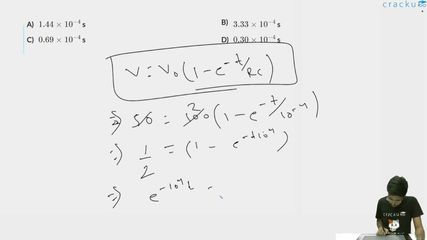 cracku
A) 1.44 × 10⁻⁴ s
B) 3.33 × 10⁻⁴ s
C) 0.69 × 10⁻⁴ s
D) 0.30 × 10⁻⁴ s
V = V₀ (1 - e^{-t/RC})
⇒ 50 = 100 (1 - e^{-t/10⁻⁴})
2
⇒ 1/2 = (1 - e^{-t10⁴})
⇒ e^{-10⁴t} =
CRACKU